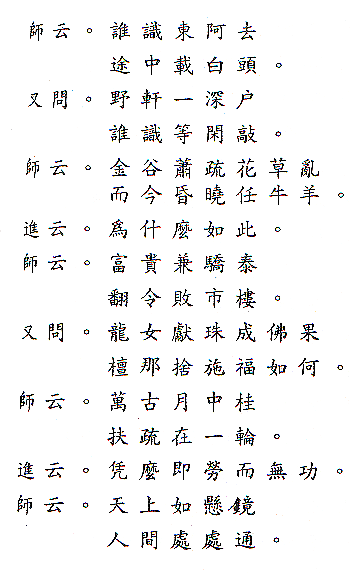 師云。誰識東阿去
途中載白頭。
又問。野軒一深户
誰識等閑敲。
師云。金谷蕭疏花草亂
而今昏曉任牛羊。
進云。爲什麼如此。
師云。富貴兼驕泰
翻令敗市樓。
又問。龍女獻珠成佛果
檀那捨施福如何。
師云。萬古月中桂
扶疏在一輪。
進云。凭麼即勞而無功。
師云。天上如懸鏡
人間處處通。